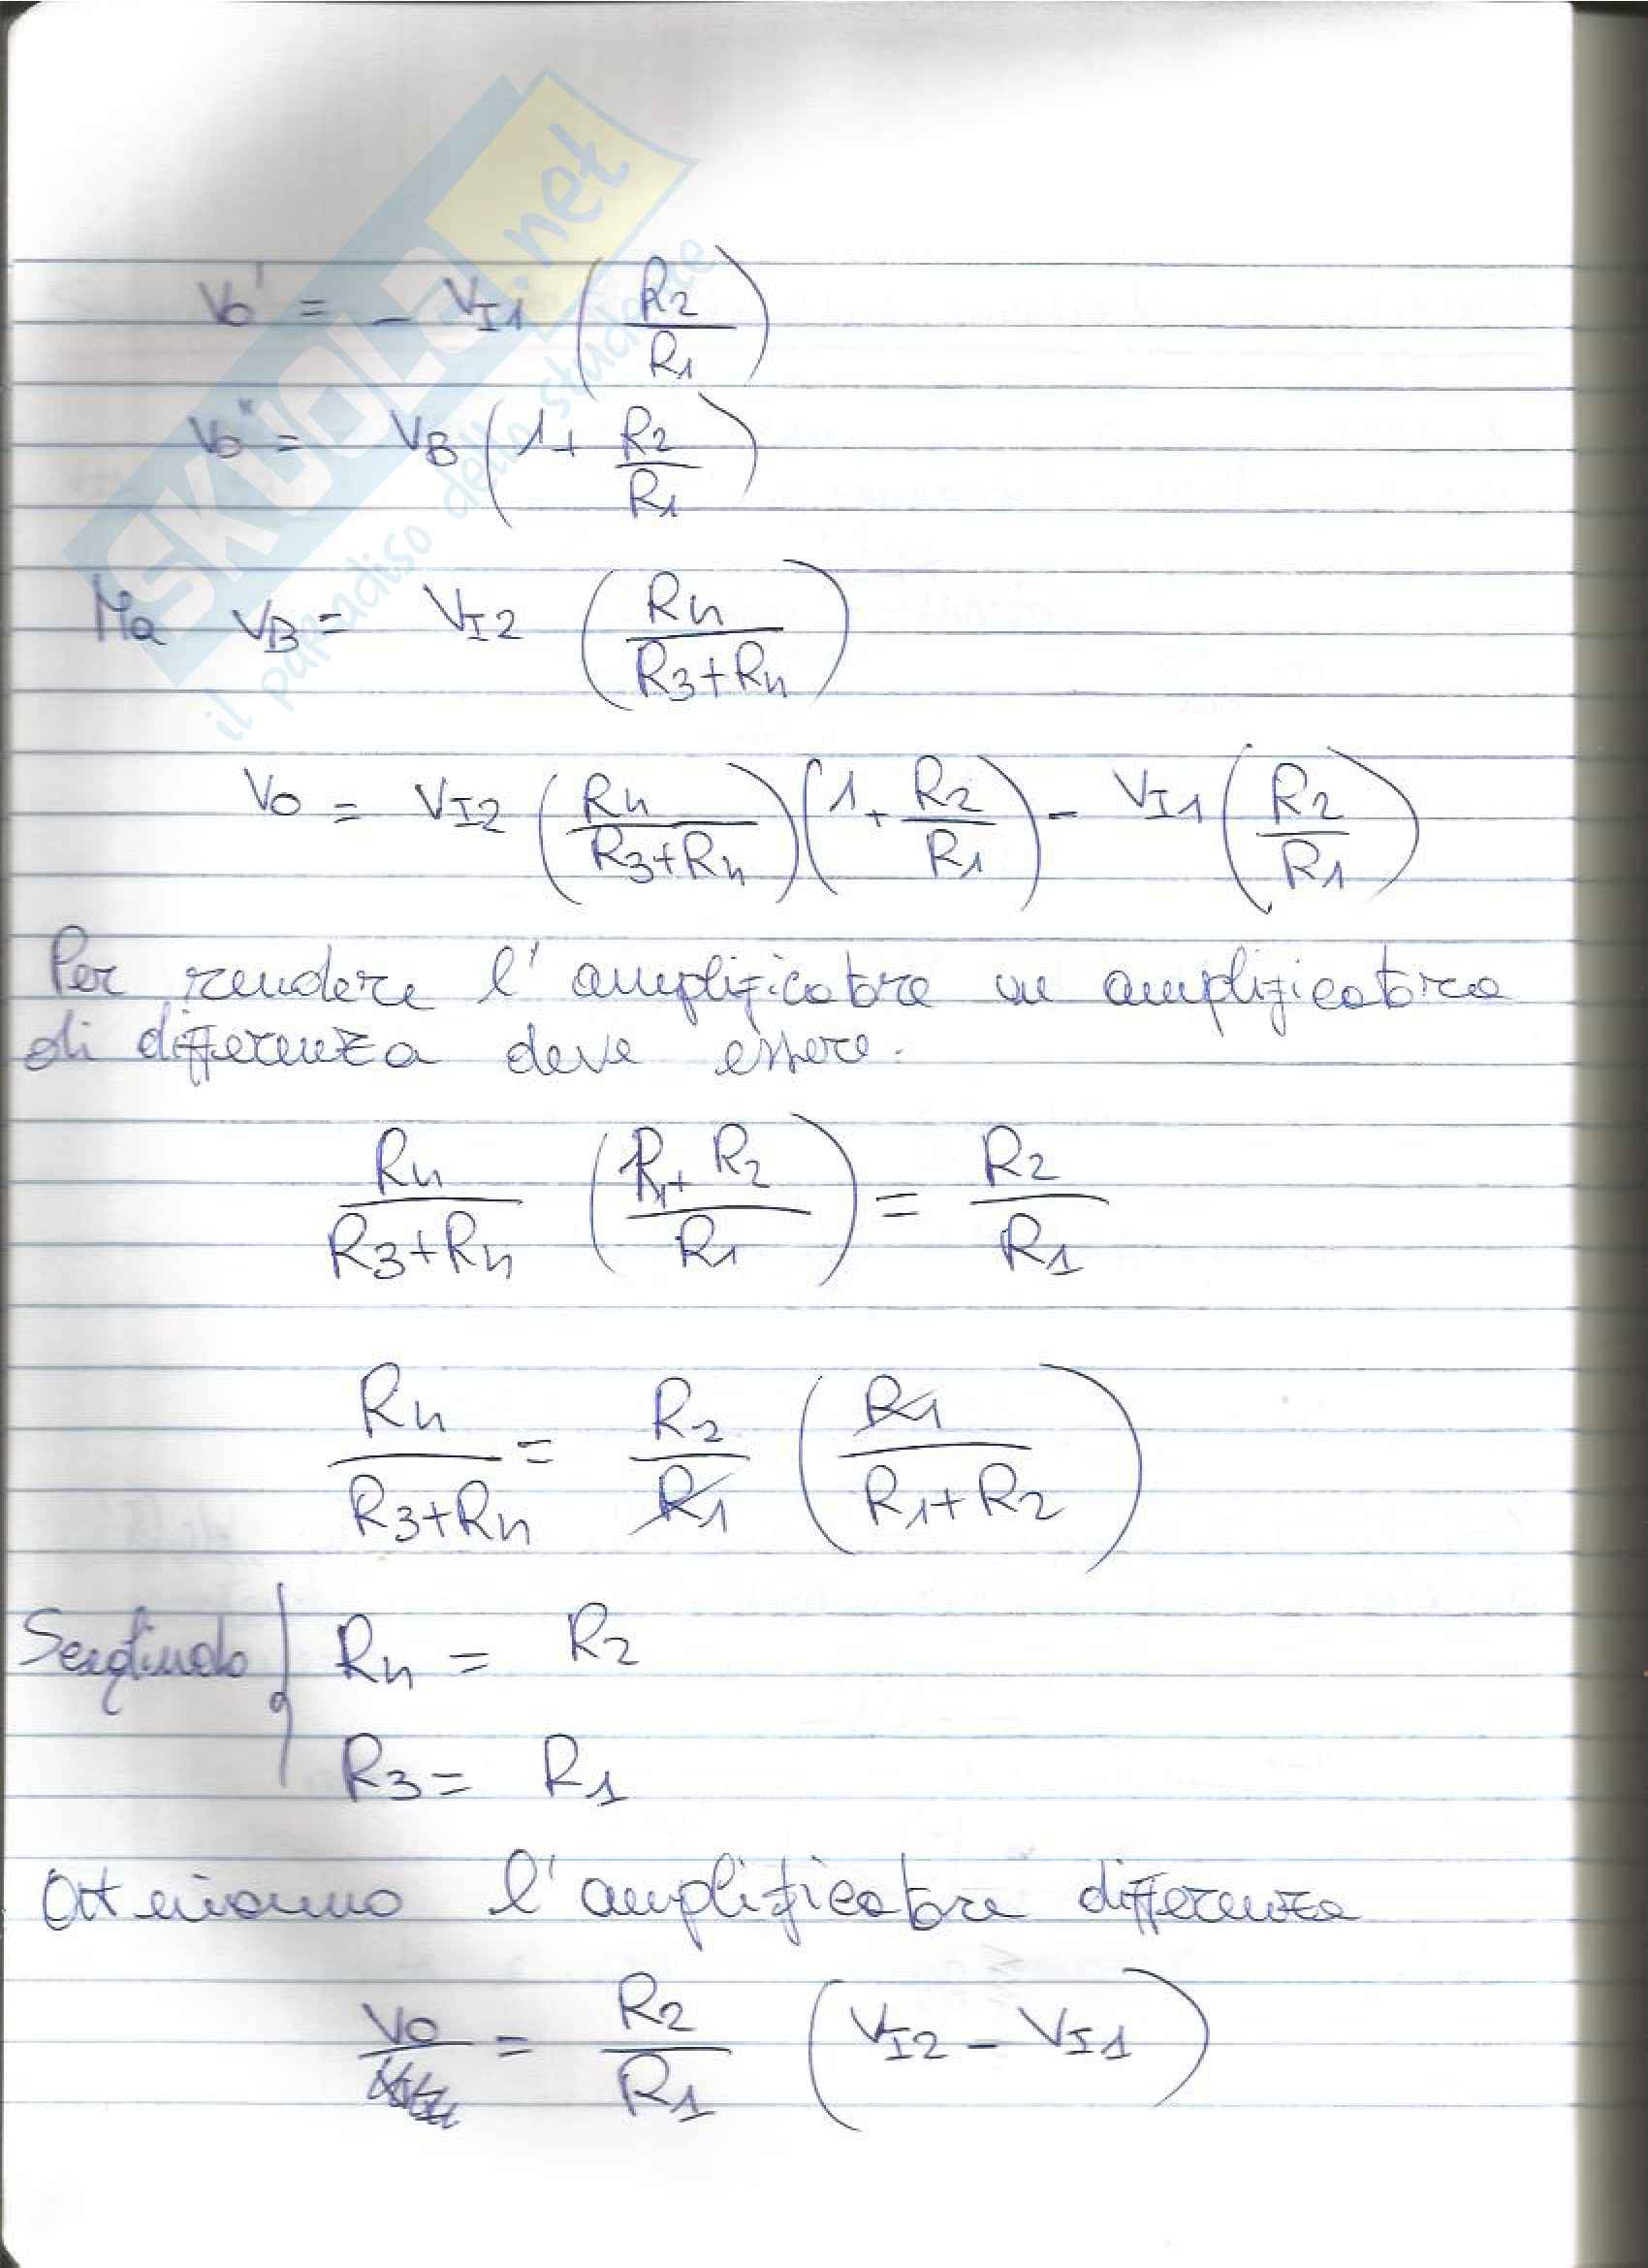 SKUOLA.net
il paradiso dello studente
Vo' = - VI1 (R2/R1)
Vo'' = VB (1 + R2/R1)
Ma VB = VI2 (R4/(R3+R4))
Vo = VI2 (R4/(R3+R4)) (1 + R2/R1) - VI1 (R2/R1)
Per rendere l'amplificatore un amplificatore
di differenza deve essere:
R4/(R3+R4) ((R1+R2)/R1) = R2/R1
R4/(R3+R4) = R2/R1 (R1/(R1+R2))
Scegliendo { R4 = R2
R3 = R1
Otteniamo l'amplificatore differenza
Vo = R2/R1 (VI2 - VI1)